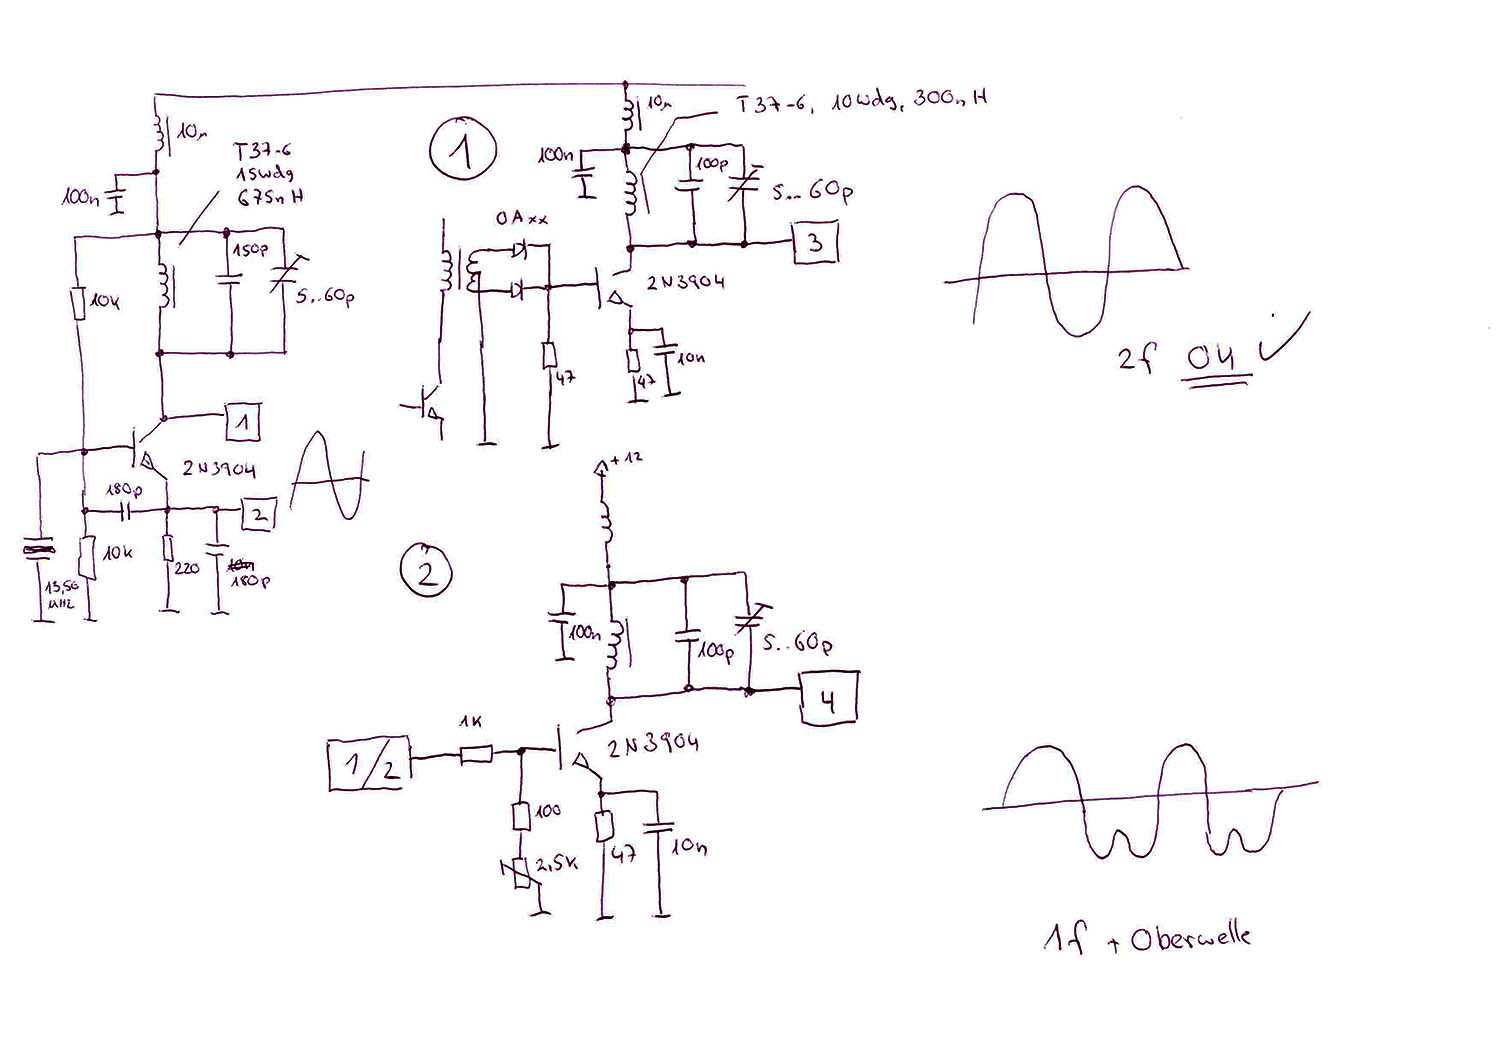 10µ
T37-6
15wdg
675nH
100n
150p
5..60p
10k
1
2N3904
180p
2
10k
220
10n
180p
13,56
MHz
1
10µ
T37-6, 10Wdg, 300nH
100n
100p
5...60p
0Axx
3
2N3904
47
47
10n
2f OK
+12
2
100n
100p
5..60p
4
1k
2N3904
1/2
100
2,5k
47
10n
1f + Oberwelle